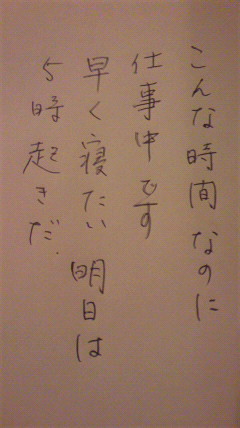 こんな時間なのに
仕事中です
早く寝たい 明日は
5時起きだ.